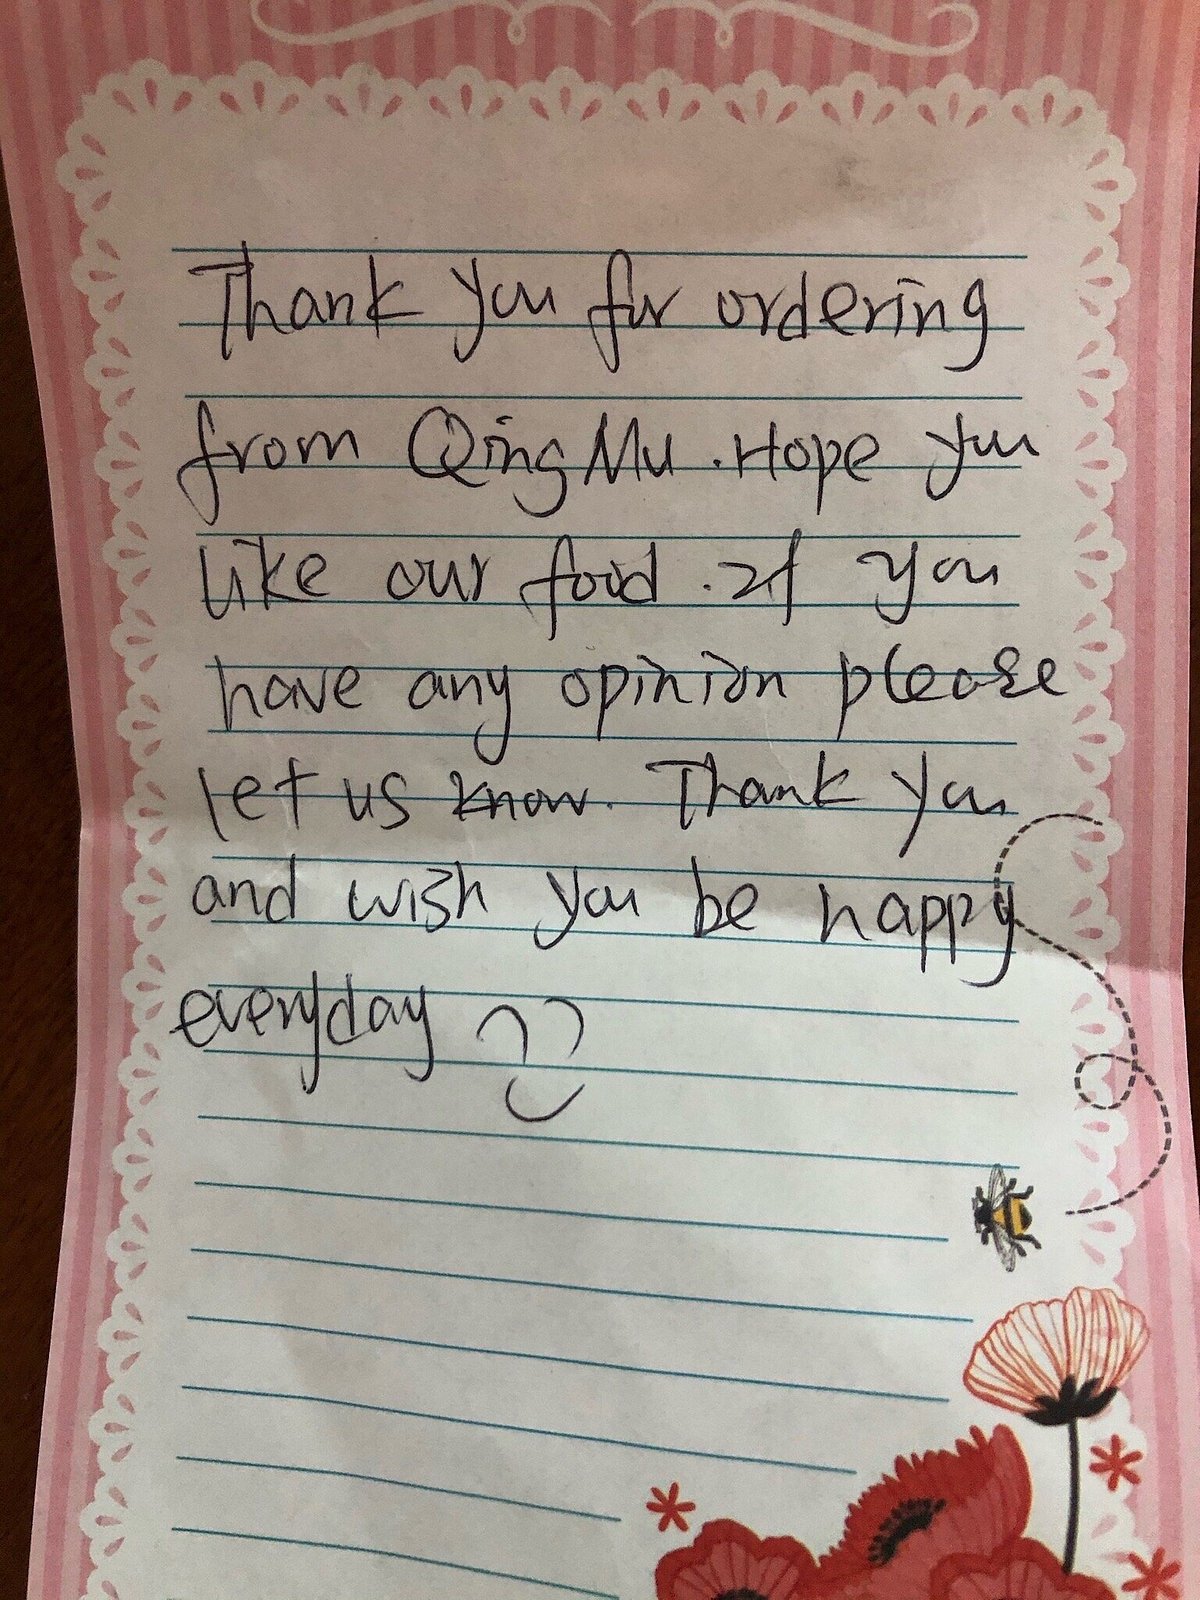 Thank you for ordering
from Qing Mu. Hope you
like our food. If you
have any opinion please
let us know. Thank you
and wish you be happy
everyday